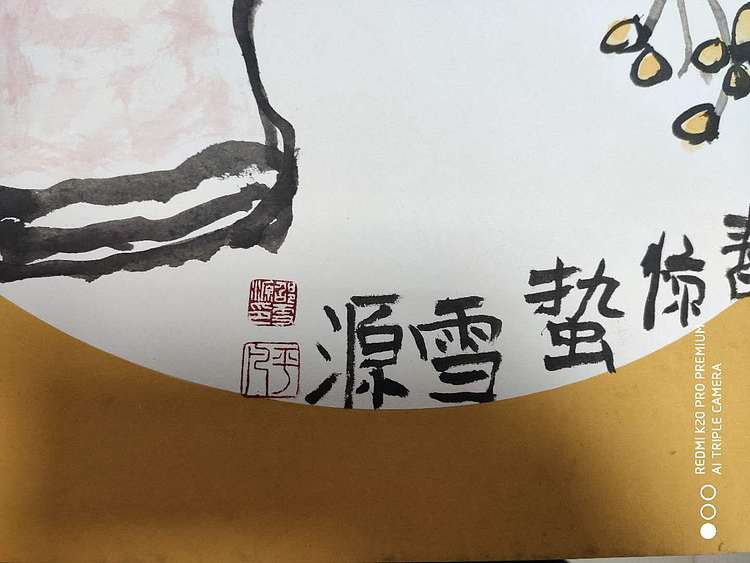 惊蛰雪源
邵雪源印
REDMI K20 PRO PREMIUM
AI TRIPLE CAMERA